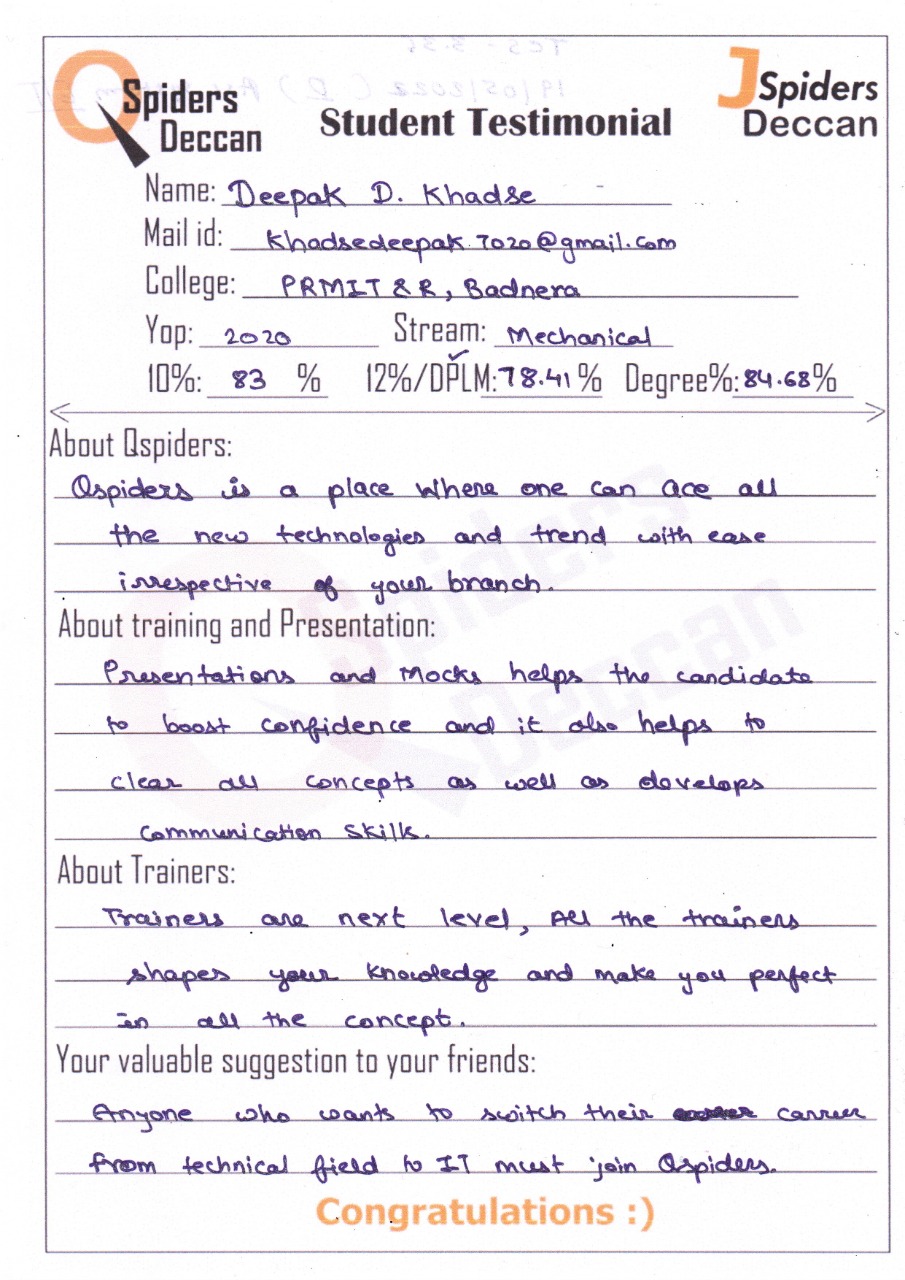 QSpiders Deccan
Student Testimonial
JSpiders Deccan
Name: Deepak D. Khadse
Mail id: khadsedeepak.7020@gmail.com
College: PRMIT & R, Badnera
Yop: 2020 Stream: Mechanical
10%: 83 % 12%/DPLM: 78.41 % Degree%: 84.68%
About Qspiders:
Qspiders is a place where one can ace all
the new technologies and trend with ease
irrespective of your branch.
About training and Presentation:
Presentations and Mocks helps the candidate
to boost confidence and it also helps to
clear all concepts as well as develops
communication skills.
About Trainers:
Trainers are next level, All the trainers
shapes your knowledge and make you perfect
in all the concept.
Your valuable suggestion to your friends:
Anyone who wants to switch their carrier
from technical field to IT must join Qspiders.
Congratulations :)